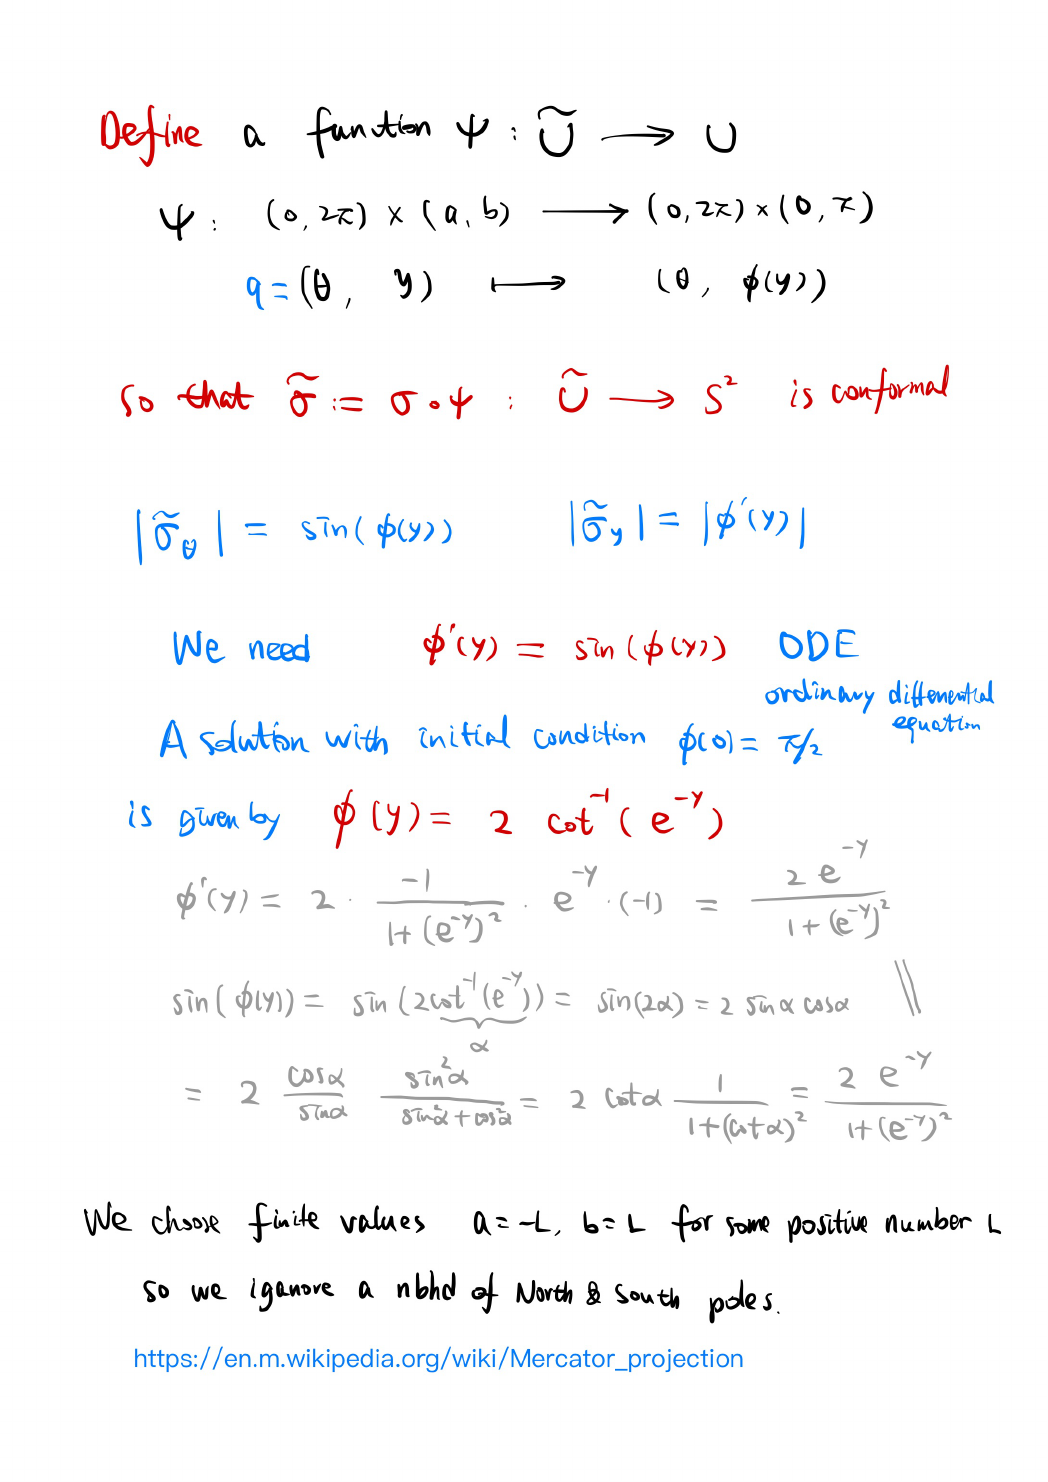 Define a function ψ : Ũ → U
ψ : (0, 2π) × (a, b) → (0, 2π) × (0, π)
q = (θ, y) ↦ (θ, ϕ(y))
so that σ̃ := σ∘ψ : Ũ → S² is conformal
|σ̃_θ| = sin(ϕ(y)) |σ̃_y| = |ϕ'(y)|
We need ϕ'(y) = sin(ϕ(y)) ODE
ordinary differential
equation
A solution with initial condition ϕ(0) = π/2
is given by ϕ(y) = 2 cot⁻¹(e^{-y})
ϕ'(y) = 2 · \frac{-1}{1+(e^{-y})²} · e^{-y} · (-1) = \frac{2e^{-y}}{1+(e^{-y})²}
sin(ϕ(y)) = sin(2cot⁻¹(e^{-y})) = sin(2α) = 2 sinα cosα \\
α
= 2 \frac{cosα}{sinα} \frac{sin²α}{sin²α+cos²α} = 2 cotα \frac{1}{1+(cotα)²} = \frac{2e^{-y}}{1+(e^{-y})²}
We choose finite values a=-L, b=L for some positive number L
so we iganore a nbhd of North & South poles.
https://en.m.wikipedia.org/wiki/Mercator_projection